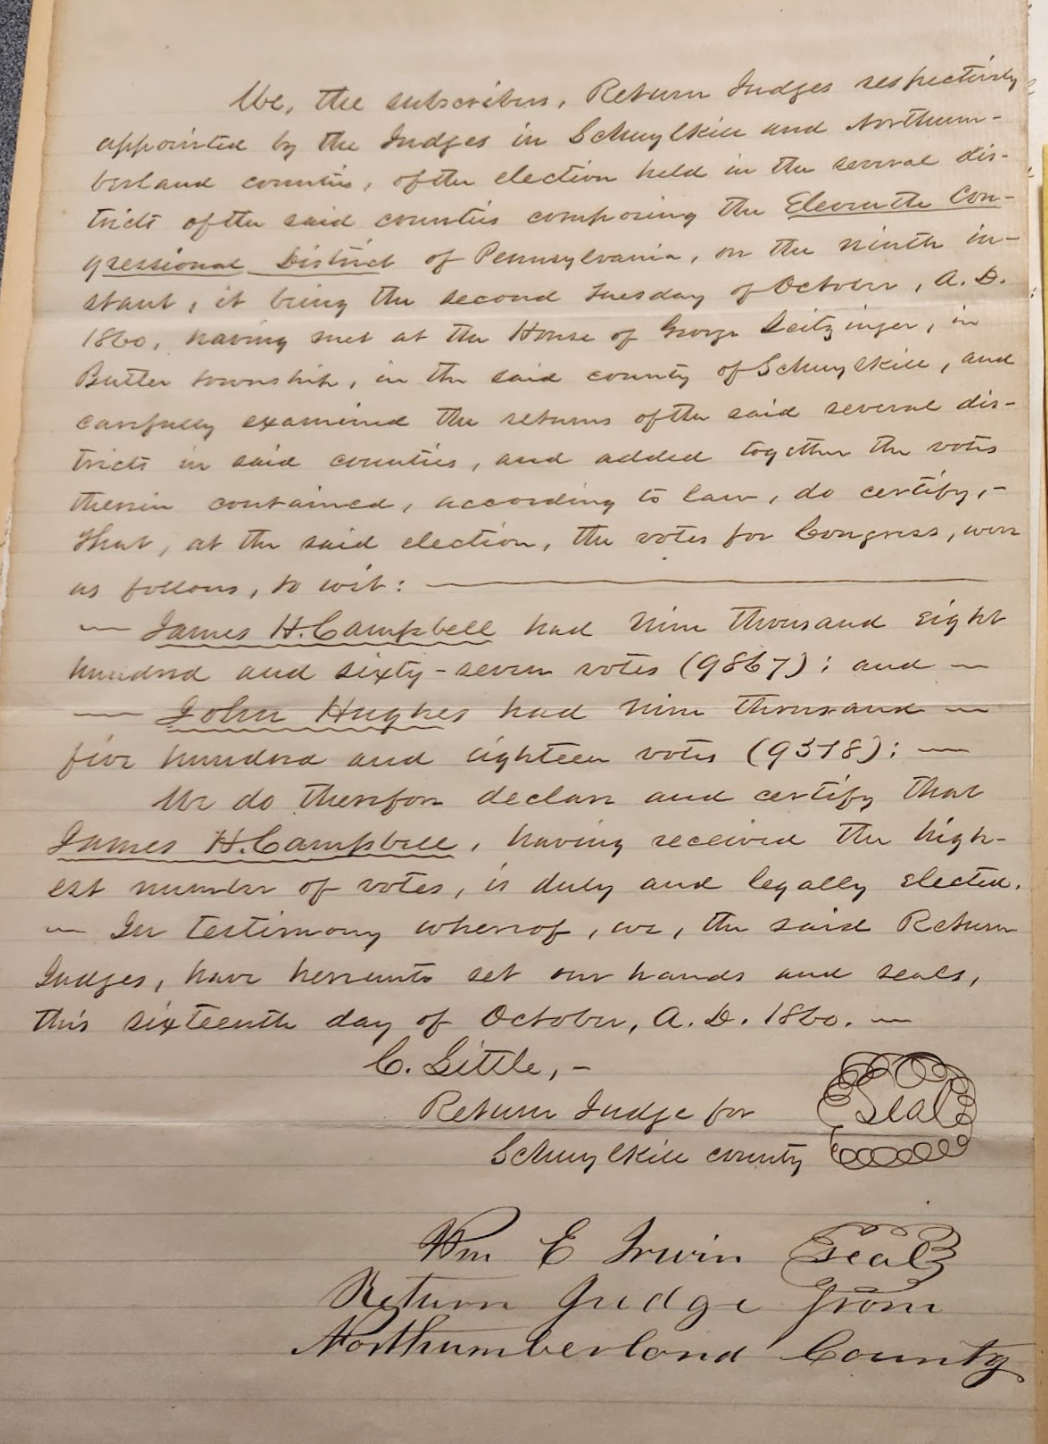 We, the subscribers, Return Judges respectively
appointed by the Judges in Schuylkill and Northum-
berland counties, of the election held in the several dis-
tricts of the said counties composing the Eleventh Con-
gressional District of Pennsylvania, on the ninth in-
stant, it being the second Tuesday of October, A. D.
1860, having met at the House of George Seitzinger, in
Butler township, in the said county of Schuylkill, and
carefully examined the returns of the said several dis-
tricts in said counties, and added together the votes
therein contained, according to law, do certify, -
That, at the said election, the votes for Congress, were
as follows, to wit: —
— James H. Campbell had nine thousand eight
hundred and sixty-seven votes (9867); and —
— John Hughes had nine thousand —
five hundred and eighteen votes (9518); —
We do therefore declare and certify that
James H. Campbell, having received the high-
est number of votes, is duly and legally elected.
— In testimony whereof, we, the said Return
Judges, have hereunto set our hands and seals,
this sixteenth day of October, A. D. 1860. —
C. Little, -
Return Judge for Seal
Schuylkill county
Wm E Irwin Seal
Return Judge from
Northumberland County